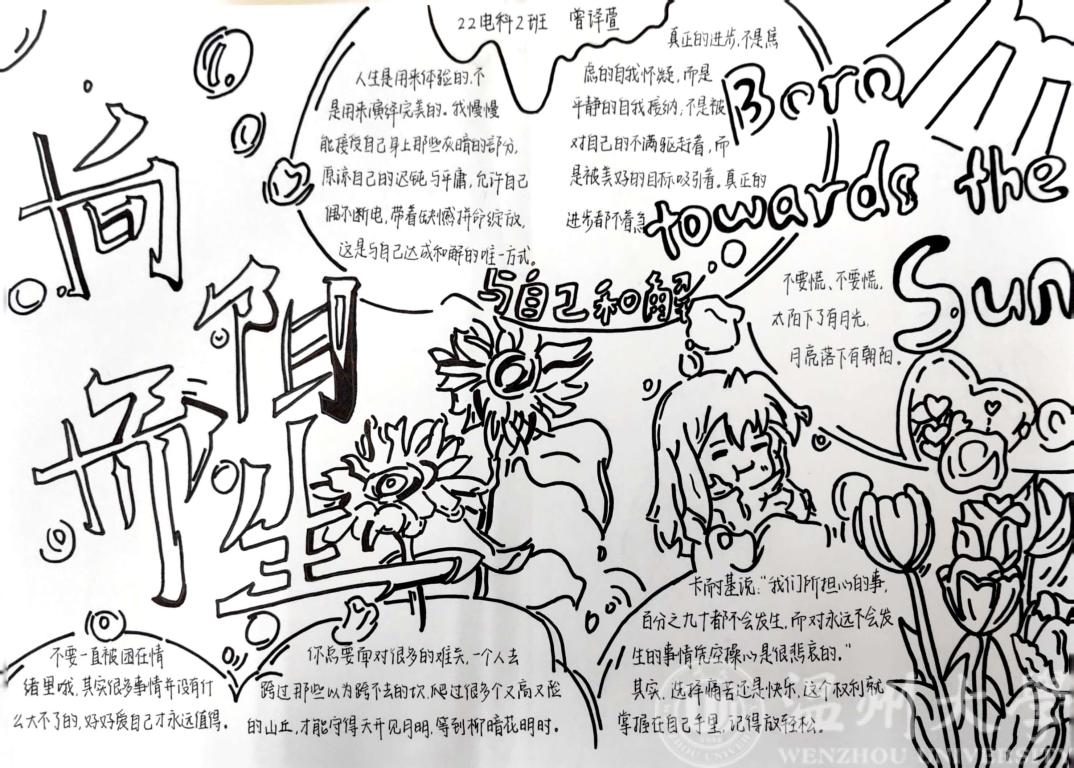 22电科2班 曾译萱
人生是用来体验的,不
是用来演绎完美的。我慢慢
能接受自己身上那些灰暗的部分,
原谅自己的迟钝与平庸,允许自己
偶尔断电,带着缺憾拼命绽放,
这是与自己达成和解的唯一方式。
真正的进步,不是焦
虑的自我怀疑,而是
平静的自我接纳,不是被
对自己的不满驱赶着,而
是被美好的目标吸引着。真正的
进步都不着急
与自己和解
Born
towards the
Sun
向阳而生
不要慌、不要慌,
太阳下了有月光,
月亮落下有朝阳。
不要一直被困在情
绪里哦,其实很多事情并没有什
么大不了的,好好爱自己才永远值得。
你总要面对很多的难关,一个人去
跨过那些以为跨不去的坎,爬过很多个又高又险
的山丘,才能守得云开见月明,等到柳暗花明时。
卡耐基说:“我们所担心的事,
百分之九十都不会发生,而对永远不会发
生的事情凭空操心是很悲哀的。”
其实,选择痛苦还是快乐,这个权利就
掌握在自己手里,记得放轻松。
温州大学
WENZHOU UNIVERSITY